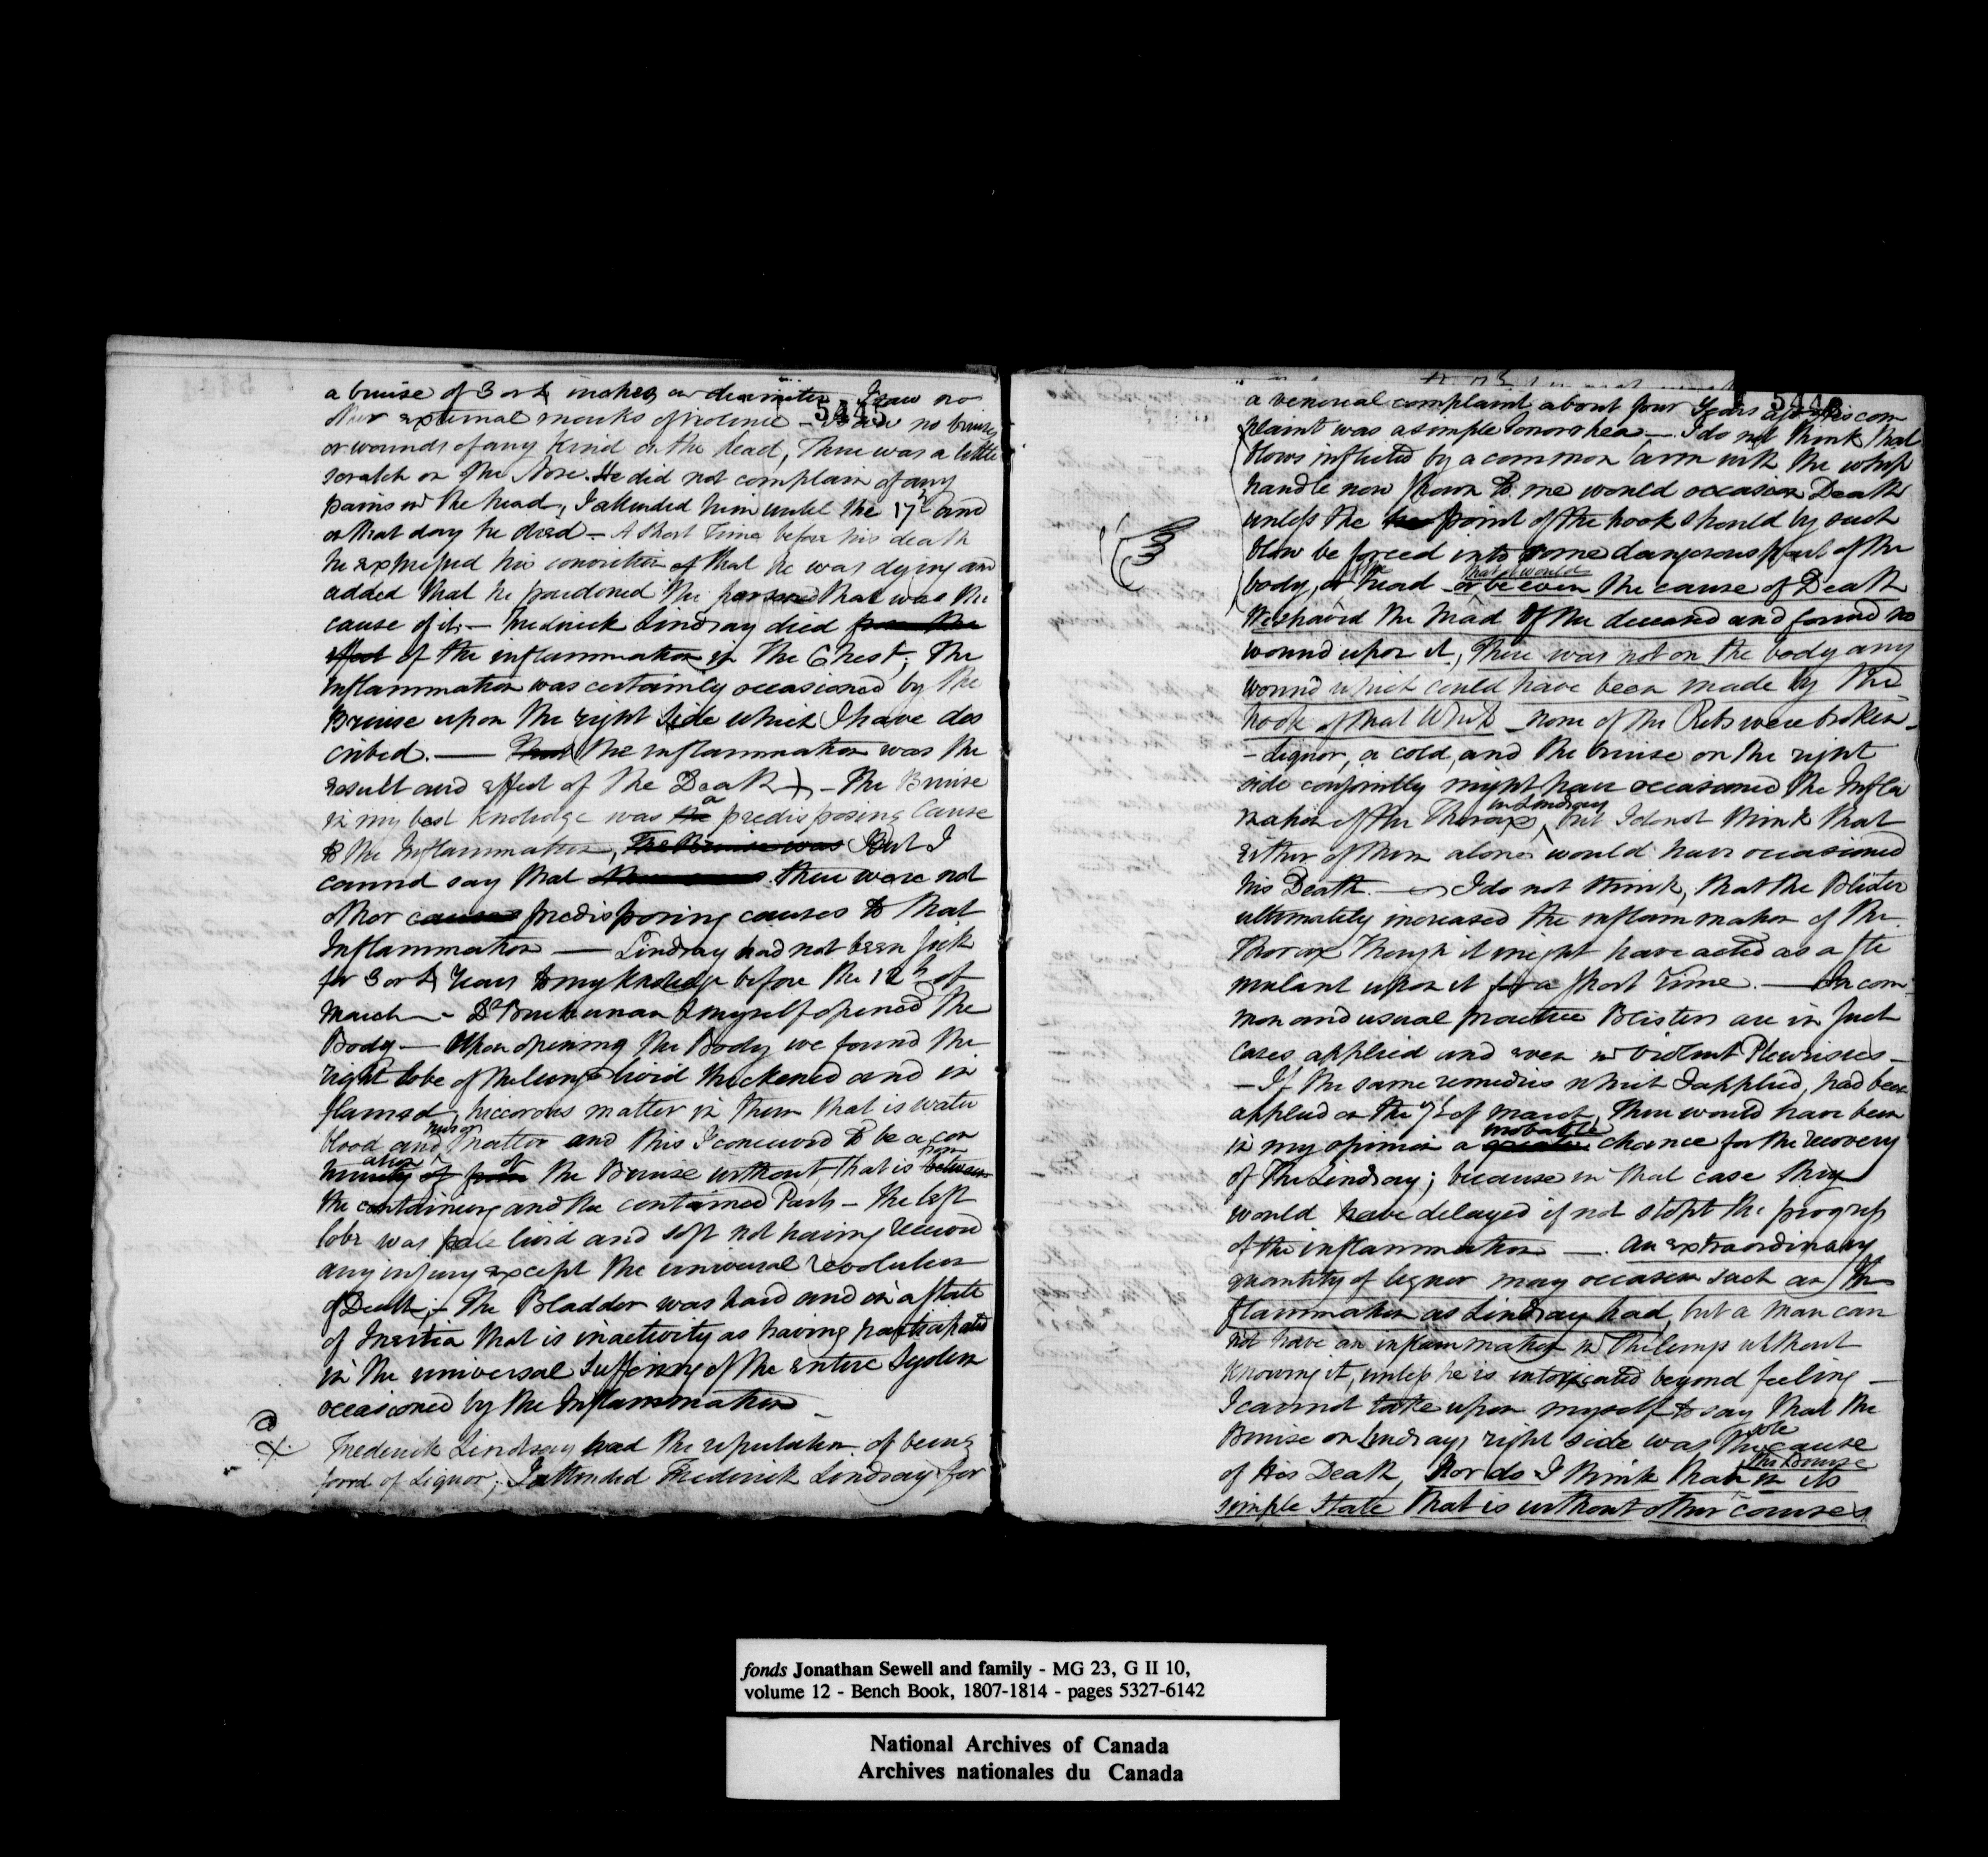 a bruise of 3 or 4 inches in diameter I saw no
5445
other external marks of violence - I saw no bruises
or wounds of any kind on the head, There was a little
scratch on the Nose. He did not complain of any
pains in the head, I attended him until the 17th and
on that day he died - A short Time before his death
he expressed his conviction that he was dying and
added that he pardoned the person that was the
cause of it. - Frederick Lindsay died from the
effect of the inflammation in the Chest; The
Inflammation was certainly occasioned by the
Bruise upon the right Side which I have des
cribed. — The inflammation was the
result and effect of the Death - The Bruise
in my best Knowledge was the a predisposing Cause
to the Inflammation, The Bruise was But I
cannot say that there were not
other causes predisposing causes to that
Inflammation — Lindsay had not been sick
for 3 or 4 Years to my knowledge before the 12th of
March - Dr Buchanan & myself opened the
Body — Upon opening the Body we found the
right lobe of the lungs livid thickened and in
flamed, matter in them that is water
blood and matter and this I conceived to be a con
of from the Bruise without, that is between from
the containing and the contained Parts - the left
lobe was pale livid and soft not having received
any injury except the universal revolution
of Death; - The Bladder was hard and in a state
of Inertia that is inactivity as having participated
in the universal suffering of the entire System
occasioned by the Inflammation -
Frederick Lindsay had the reputation of being
fond of Liquor; I attended Frederick Lindsay for
5446
a venereal complaint about four Years ago his com
plaint was a simple Gonorrhea — I do not think that
blows inflicted by a common arm with the whip
handle now shown to me would occasion Death
unless the point of the hook should by such
blow be forced into some dangerous part of the
body, or the head or that it would be even the cause of Death
We shaved the head of the deceased and found no
wound upon it, There was not on the body any
wound which could have been made by the
hook of that Whip - none of the Ribs were broken -
- Liquor, a cold, and the bruise on the right
side conjointly might have occasioned the Infla
mation of the Thorax in Lindsay, but I do not think that
either of them alone would have occasioned
his Death. — I do not think, that the Blister
ultimately increased the inflammation of the
Thorax though it might have acted as a sti
mulant upon it for a short time. — In com
mon and usual practice Blisters are in such
Cases applied and even in violent Pleurisies -
- If the same remedies which I applied, had been
applied on the 9th of March, there would have been
in my opinion a greater probable chance for the recovery
of The Lindsay; because in that case they
would have delayed if not stopt the progress
of the inflammation —. An extraordinary
quantity of liquor may occasion such an In
flammation as Lindsay had, but a man can
not have an inflammation in the lungs without
knowing it, unless he is intoxicated beyond feeling -
I cannot take upon myself to say that the
Bruise on Lindsays right side was the sole cause
of His Death, Nor do I think that the Bruise in its
simple state that is without other causes
fonds Jonathan Sewell and family - MG 23, G II 10,
volume 12 - Bench Book, 1807-1814 - pages 5327-6142
National Archives of Canada
Archives nationales du Canada